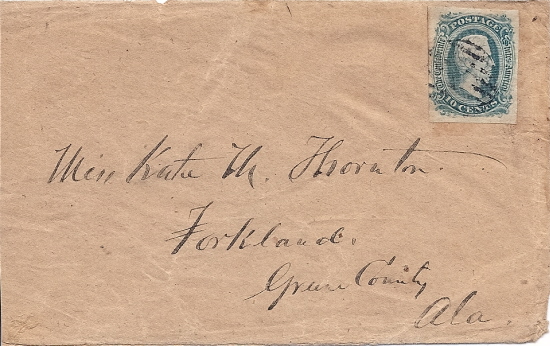 POSTAGE
The Confederate States of America
TEN CENTS
Miss Kate M. Thornton.
Forkland.
Greene County
Ala.